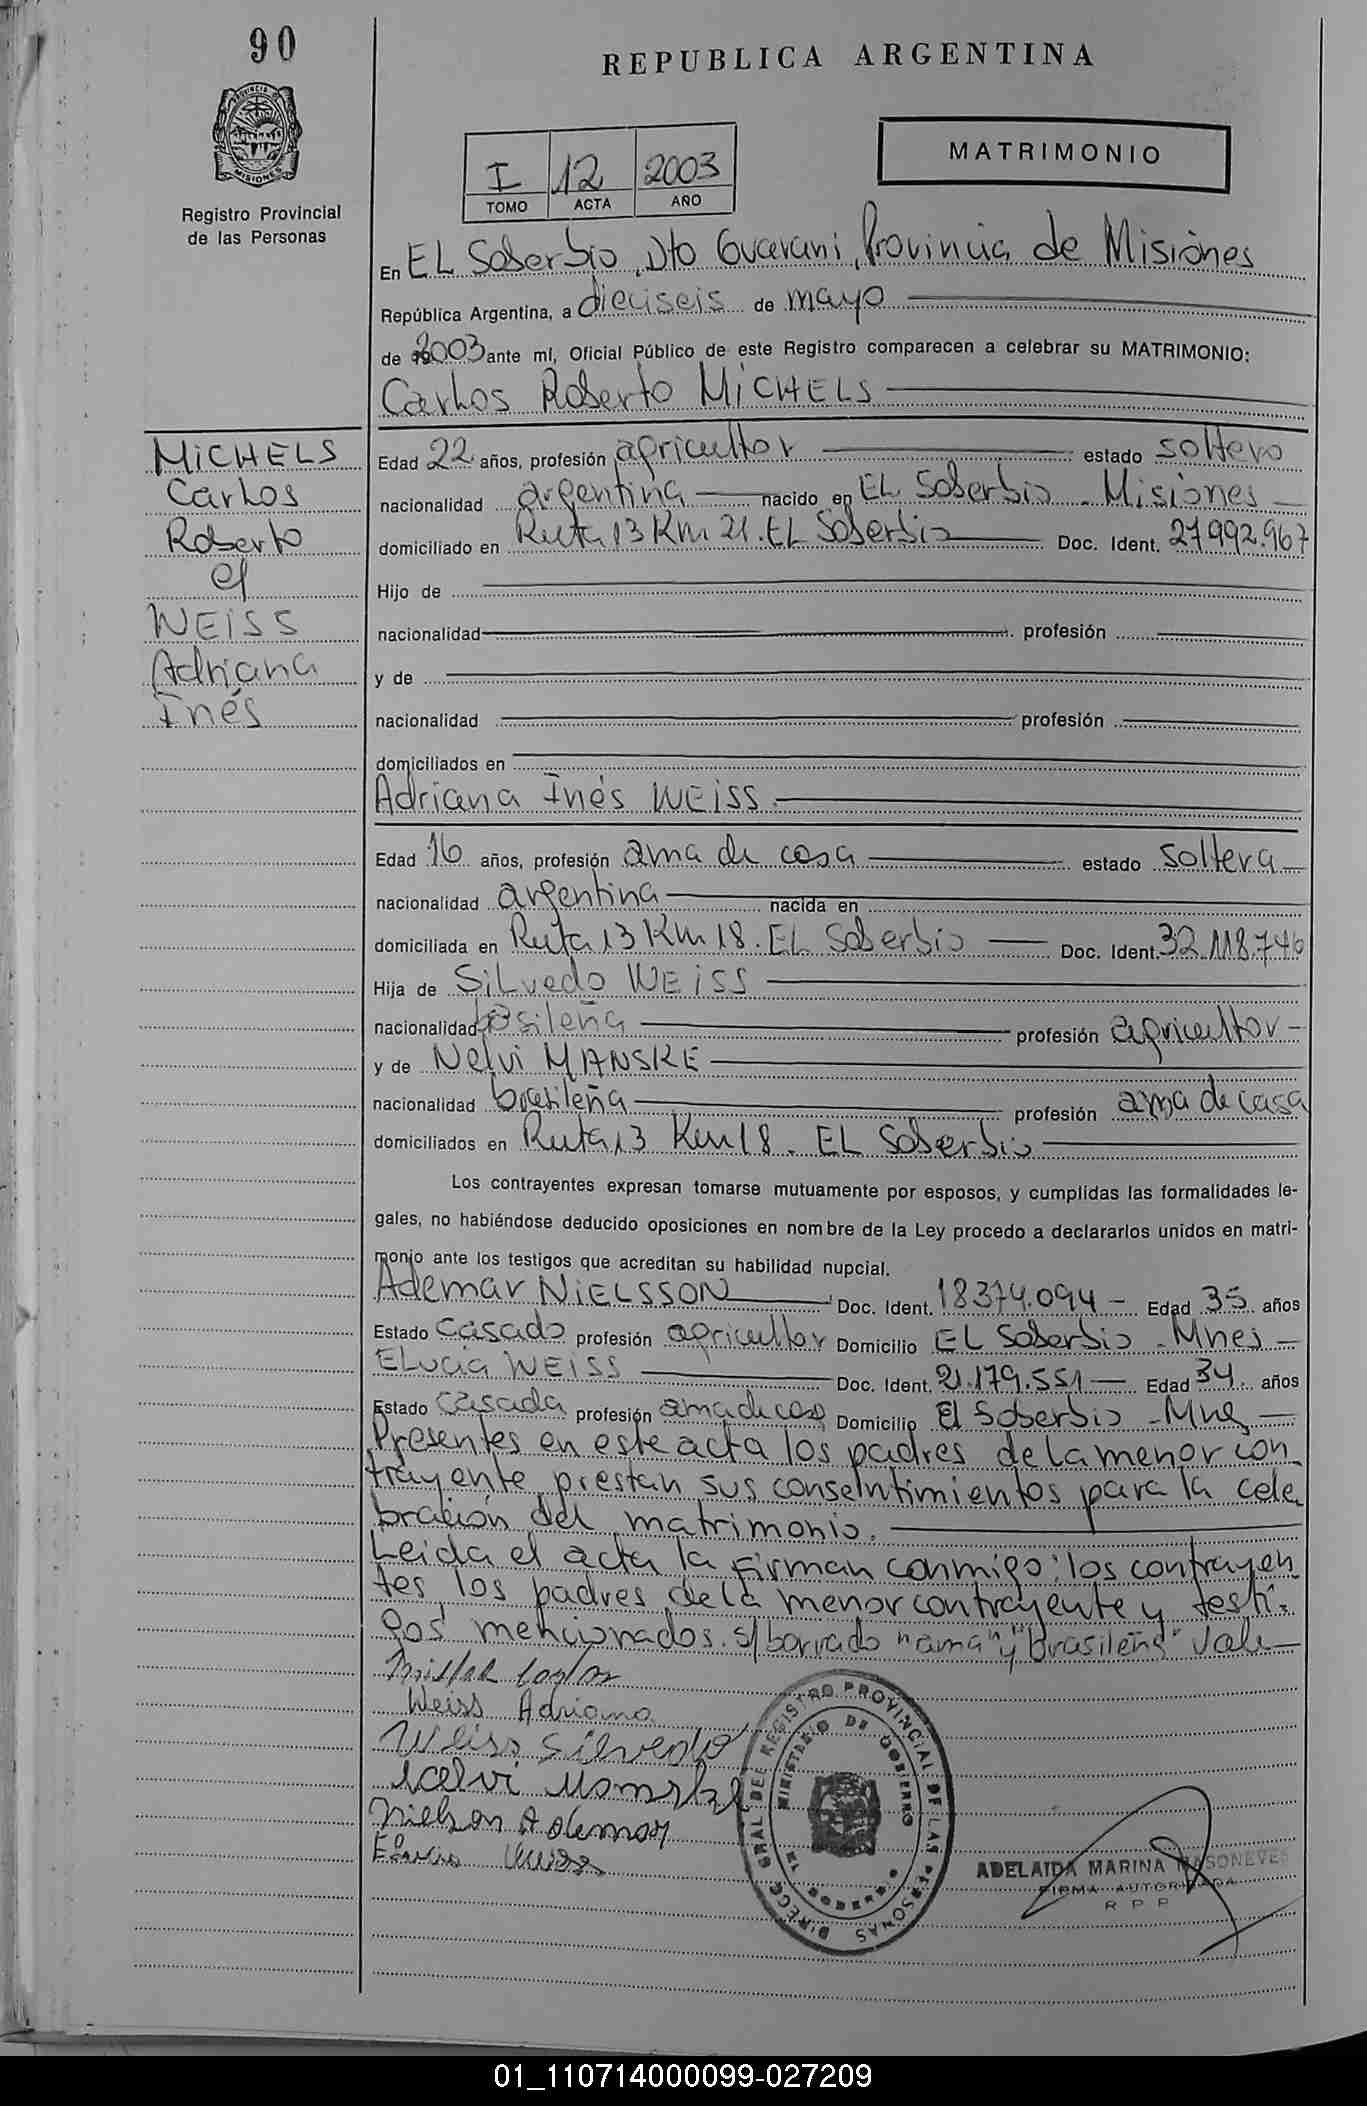 90
REPUBLICA ARGENTINA
PROVINCIA DE MISIONES
Registro Provincial
de las Personas
I 12 2003
TOMO ACTA AÑO
MATRIMONIO
En EL Soberbio, Dto Guarani, Provincia de Misiones
República Argentina, a dieciseis de mayo
de 2003 ante mí, Oficial Público de este Registro comparecen a celebrar su MATRIMONIO:
Carlos Roberto MiCHELS
MiCHELS
Carlos
Roberto
c/
WEiSS
Adriana
Inés
Edad 22 años, profesión agricultor estado soltero
nacionalidad argentina nacido en EL Soberbio - Misiones
domiciliado en Ruta 13 Km 21. EL Soberbio Doc. Ident. 27992.967
Hijo de
nacionalidad profesión
y de
nacionalidad profesión
domiciliados en
Adriana Inés WEiSS
Edad 16 años, profesión ama de casa estado soltera
nacionalidad argentina nacida en
domiciliada en Ruta 13 Km 18. EL Soberbio Doc. Ident. 32.118.746
Hija de SiLvedo WEiSS
nacionalidad profesión agricultor
y de Nelvi MANSKE
nacionalidad brasileña profesión ama de casa
domiciliados en Ruta 13 Km 18. EL Soberbio
Los contrayentes expresan tomarse mutuamente por esposos, y cumplidas las formalidades le-
gales, no habiéndose deducido oposiciones en nombre de la Ley procedo a declararlos unidos en matri-
monio ante los testigos que acreditan su habilidad nupcial.
Ademar NiELSSON Doc. Ident. 18374.094 - Edad 35 años
Estado casado profesión agricultor Domicilio EL Soberbio - Mnes
ELucia WEiSS Doc. Ident. 21.179.551 Edad 34 años
Estado casada profesión ama de casa Domicilio El Soberbio - Mnes
Presentes en este acta los padres de la menor con
trayente, prestan sus conseintimientos para la cele
bración del matrimonio.
Leida el acta la firman conmigo: los contrayen
tes, los padres de la menor contrayente y testi-
gos mencionados. s/borrado "ama" y "brasileña" Vale
Weiss Adriana
Weiss Silvedo
Nelvi Manske
Nielson Ademar
Weiss
DIRECC. GRAL DEL REGISTRO PROVINCIAL DE LAS PERSONAS
MINISTERIO DE GOBIERNO
EL SOBERBIO
ADELAIDA MARINA MASONEVES
FIRMA AUTORIZADA
R P P
01_110714000099-027209